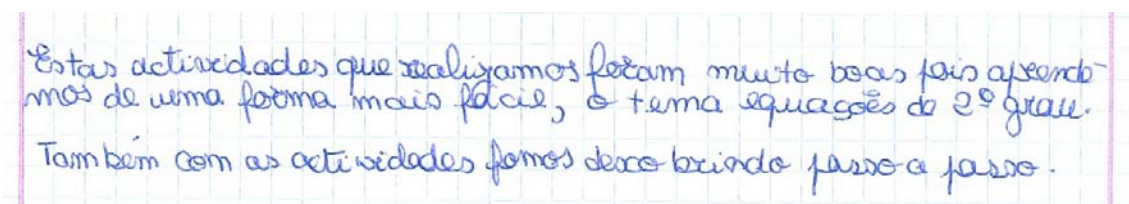 Estas actividades que realizamos foram muito boas pois aprende-
mos de uma forma mais fácil, o tema equações do 2º grau.
Também com as actividades fomos descobrindo passo a passo.